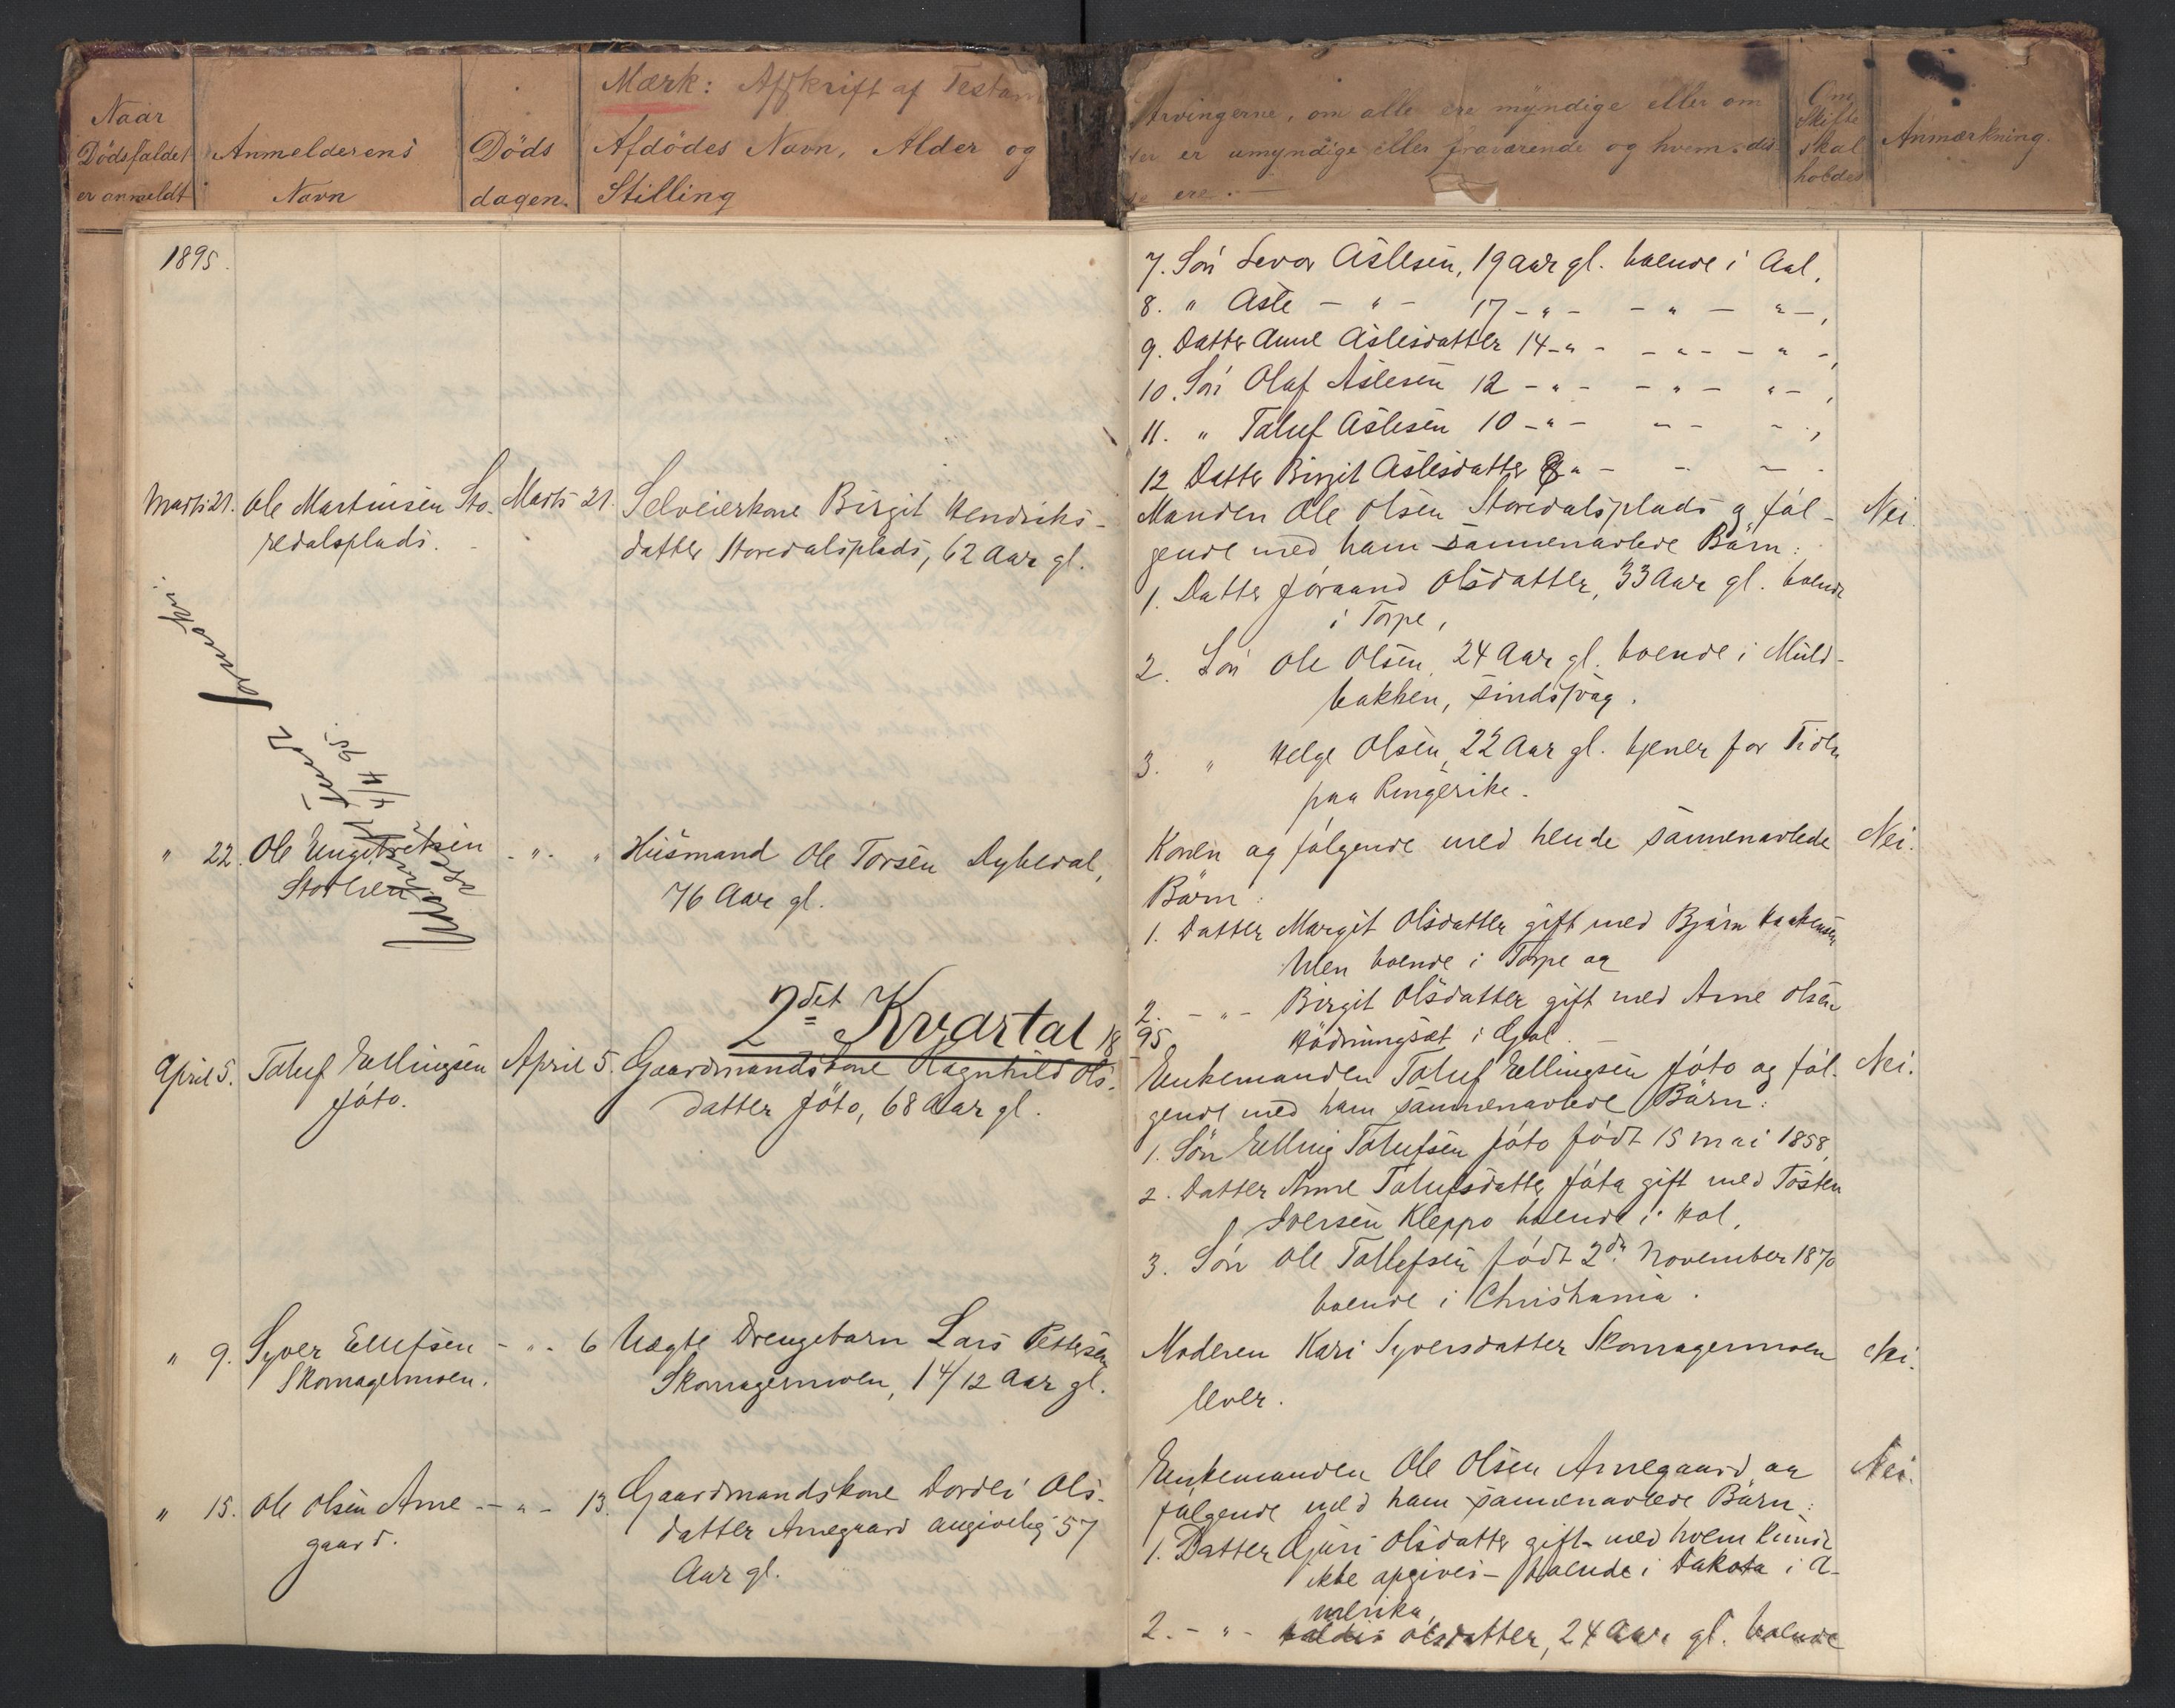 Mærk: Afskrift af Testam
Naar
Dödsfaldet
er anmeldt
Anmelderens
Navn
Döds
dagen.
Afdödes Navn, Alder og
Stilling
Arvingerne, om alle ere myndige eller om
er umyndige eller fraværende og hvem dis
ere.
Om
Skifte
skal
holdes
Anmærkning.
1895.
7. Sön Levor Aslesen, 19 Aar gl. boende i Aal,
8. " Asle - " - 17 - " - - " - " -,
9. Datter Anne Aslesdatter 14 - " - - " - - " -,
10. Sön Olaf Aslesen 12 - " - - " - " -,
11. " Toluf Aslesen 10 - " - - - - ,
12 Datter Birgit Aslesdatter 8 " - - - -
Marts 21. Ole Martinsen Sto-
redalsplads.
Marts 21.
Selveierkone Birgit Hendriks-
datter Storedalsplads, 62 Aar gl.
Manden Ole Olsen Storedalsplads og föl-
gende med ham sammenavlede Börn:
Nei.
1. Datter Jöraand Olsdatter, 33 Aar gl. boende
i Torpe,
2. Sön Ole Olsen, 24 Aar gl. boende i Muld-
bakken, sindssvag.
3. " Helge Olsen, 22 Aar gl. tjener for Tiden
paa Ringerike.
4/4 95.
" 22. Ole Engebretsen
- " - "
Husmand Ole Torsen Dyledal,
76 Aar gl.
Konen og fölgende med hende sammenavlede
Börn:
Nei.
1. Datter Margit Olsdatter gift med Björn Haakensen
Ulen boende i Torpe og
2. - " - Birgit Olsdatter gift med Arne Olsen
i Gol.
2det Kvartal 1895
April 5. Toluf Ellingsen
Jöto.
April 5.
Gaardmandskone Ragnhild Ols-
datter Jöto, 68 Aar gl.
Enkemanden Toluf Ellingsen Jöto og föl-
gende med ham sammenavlede Börn:
Nei.
1. Sön Elling Tolufsen Jöto födt 15 Mai 1858,
2. Datter Anne Tolufsdatter Jöto gift med Tosten
Iversen Kleppo boende i Hol,
3. Sön Ole Tollefsen födt 2den November 1870
boende i Christiania.
" 9. Syver Ellefsen
Skomagermoen.
- " - 6
Uægte Drengebarn Lars Pettersen
Skomagermoen, 1 4/12 Aar gl.
Moderen Kari Syversdatter Skomagermoen
lever.
Nei.
" 15. Ole Olsen Arne-
gaard.
- " - 13.
Gaardmandskone Dordei Ols-
datter Arnegaard angivelig 57
Aar gl.
Enkemanden Ole Olsen Arnegaard og
fölgende med ham sammenavlede Börn:
Nei.
1. Datter Guri Olsdatter gift - med hvem kunde
ikke opgives - boende i Dakota i A-
merika,
2. - " - Olsdatter, 24 Aar gl. boende